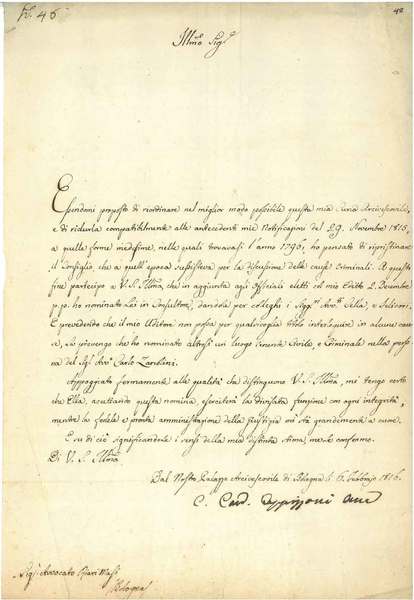 N. 46
42
Illmo Sigre
Essendomi proposto di riordinare nel miglior modo possibile questa mia Curia Arcivescovile,
e di ridurla compatibilmente alle antecedenti mie Notificazioni del 29. Novembre 1815,
a quelle forme medesime, nelle quali trovavasi l'anno 1796, ho pensato di ripristinare
il Consiglio, che a quell'epoca sussisteva per la discussione delle cause Criminali. A questo
fine partecipo a V. S. Illma, che in aggiunta agli Officiali eletti col mio Editto 2. Decembre
p. p. ho nominato Lei in Consultore, dandole per colleghi i Siggri Avvti Cella, e
E prevedendo che il mio Auditore non possa per qualsivoglia titolo intervenire in alcune cause,
La prevengo che ho nominato altresì un luogo tenente Civile, e Criminale nella perso
na del Sigr Avvo Carlo Zambini.
Appoggiato fermamente alle qualità che distinguono V. S. Illma, mi tengo certo
che Ella, accettando questa nomina, eserciterà la divisata funzione con ogni integrità,
mentre la fedele e pronta amministrazione della giustizia mi stà grandemente a cuore.
E su di ciò significandole i sensi della mia distinta stima, me le confermo.
Di V. S. Illma
Dal Nostro Palazzo Arcivescovile di Bologna li 6. Febbrajo 1816.
C. Card. Oppizzoni Arciv
Sigr Avvocato
Bologna